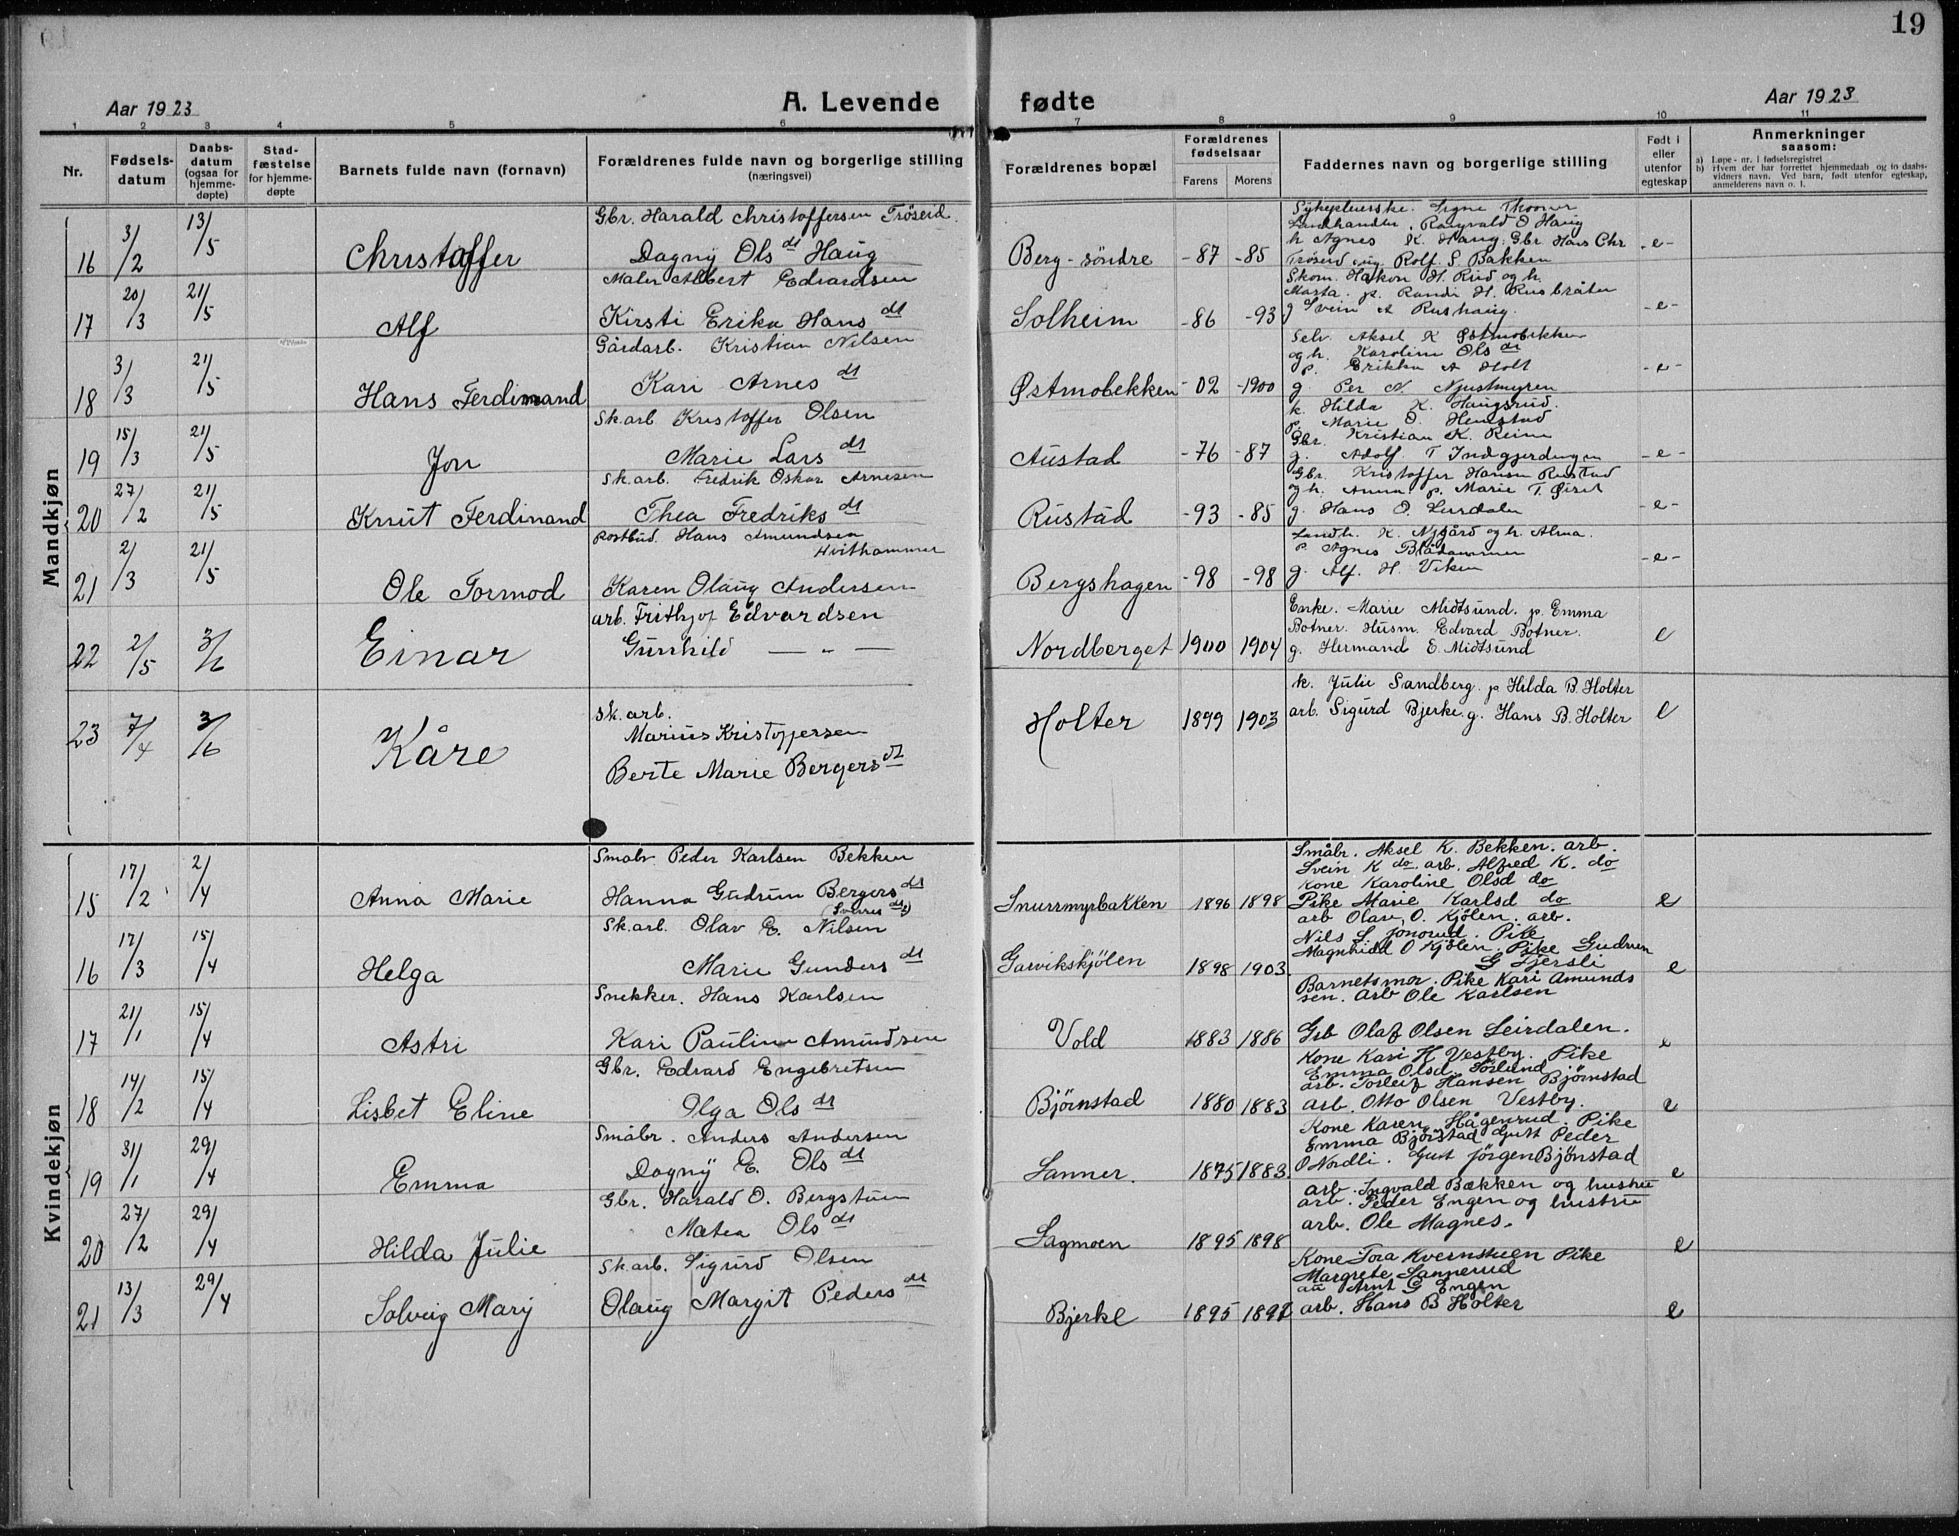 19
Aar 1923 A. Levende fødte Aar 1923
1 2 3 4 5 6 7 8 9 10 11
Nr. Fødsels-datum Daabs-datum (ogsaa for hjemme-døpte) Stad-fæstelse for hjemme-døpte Barnets fulde navn (fornavn) Forældrenes fulde navn og borgerlige stilling (næringsvei) Forældrenes bopæl Forældrenes fødselsaar Farens Morens Faddernes navn og borgerlige stilling Født i eller utenfor egteskap Anmerkninger saasom:
a) Løpe-nr. i fødselsregistret
b) Hvem der har forrettet hjemmedaab og to daabs-vidners navn. Ved barn, født utenfor egteskap, anmelderens navn o. l.
Mandkjøn
16 3/2 13/5 Christoffer Gbr. Harald Christoffersen Trøseid.
Dagny Olsdt Haug Berg-søndre -87 -85 Sykepleierske. Signe Thoner
Landhandler. Rangvald O Haug
h Agnes K. Haug. Gbr Hans Chr
Trøseid ug. Rolf. S. Bakken -e-
17 20/3 21/5 Alf Maler Albert Edvardsen
Kirsti Erika Hansdt Solheim -86 -93 Skom. Håkon H. Rud og h.
Marta. p. Randi H. Rusbråten
g Svein A Rushaug. -e-
18 3/3 21/5 Hans Ferdinand Gårdarb. Kristian Nilsen
Kari Arnesdt Østmobekken -02 -1900 Selv. Aksel K Østmobekken
og h. Karoline Olsdt
p. Erikka A Holt
g. Per N. Njustmyren -e-
19 15/3 21/5 Jon Sk.arb Kristoffer Olsen
Marie Larsdt Austad -76 -87 k. Hilda K. Haugsrud.
p. Marie O. Hemstad
Gbr. Kristian K. Reim
g. Adolf T Indgjerdingen -e-
20 27/2 21/5 Knut Ferdinand Sk.arb. Fredrik Oskar Arnesen
Thea Fredriksdt Rustad -93 -85 Gbr. Kristoffer Hansen Rustad
og h. Anna. p. Marie T. Øiset
g. Hans O. Lusdalen -e-
21 2/3 21/5 Ole Tormod Postbud. Hans Amundsen
Hvithammer
Karen Olaug Andersen Bergshagen -98 -98 Landh. K. Nygård og h. Alma.
p. Agnes Blådammen
g. Alf. H. Viken -e-
22 2/5 3/6 Einar arb. Frithjof Edvardsen
Gunhild — „ — Nordberget 1900 1904 Enke. Marie Midtsund. p. Emma
Botner. Husm. Edvard Botner.
g. Hermand E. Midtsund e
23 7/4 3/6 Kåre Sk. arb.
Marius Kristoffersen
Berte Marie Bergersdt Holter 1899 1903 k. Julie Sandberg. p Hilda B. Holter
arb. Sigurd Bjerke g. Hans B. Holter e
Kvindekjøn
15 17/2 2/4 Anna Marie Småbr. Peder Karlsen Bekken
Hanna Gudrun Bergersdt
(Sverresdt) Snurrmyrbakken 1896 1898 Småbr. Aksel K. Bekken. arb.
Svein K do. arb. Alfred K. do
Kone Karoline Olsd do
Pike Marie Karlsd do e
16 17/3 15/4 Helga Sk.arb. Olav E. Nilsen
Marie Gundersdt Garvikskjølen 1898 1903. arb Olav O. Kjølen. arb.
Nils S. Jonsrud. Pike
Magnhild O Kjølen. Pike Gudrun
G Fjersli e
17 21/1 15/4 Astri Snekker. Hans Karlsen
Kari Pauline Amundsen Vold 1883 1886 Barnets mor. Pike Kari Amunds
sen. Arb Ole Karlsen
Grb Olaf Olsen Leirdalen. e
18 14/2 15/4 Lisbet Eline Gbr. Edvard Engebretsen
Olga Olsdt Bjørnstad 1880 1883 Kone Kari H Vestby. Pike
Emma Olsd. Sørlund
arb. Torleif Hansen Bjørnstad
arb. Otto Olsen Vestby. e
19 31/1 29/4 Emma Småbr. Anders Andersen
Dagny E. Olsdt Sanner. 1875 1883. Kone Karen Hågenrud. Pike
Emma Bjørstad Gutt Peder
O Nordli. Gut Jørgen Bjønstad e
20 27/2 29/4 Hilda Julie Gbr. Harald O. Bergstuen
Matea Olsdt Sagmoen 1895 1898 arb. Ingvald Bækken og hustru
arb. Peder Engen og hustru
arb. Ole Magnes. e
21 13/3 29/4 Solveig Mary Sk.arb. Sigurd Olsen
Olaug Margit Pedersdt Bjerke 1895 Kone Tora Kvernstuen Pike
Margrete Sannerud
Arnt G Engen
arb. Hans B Holter e